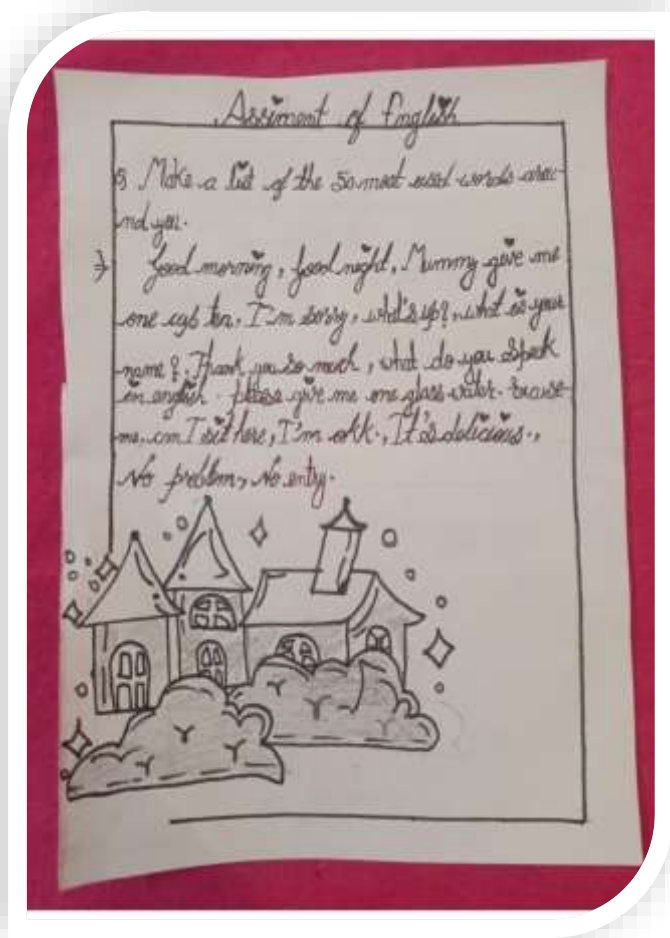 Assiment of English
Q Make a list of the 50 most used words arou-
nd you.
→ Good morning, Good night, Mummy give me
one cup tea, I'm sorry, what's up?, what is your
name?, Thank you so much, what do you speak
in english. please give me one glass water. Excuse-
me, can I sit here, I'm okk., It's delicious.,
No problem, No entry.